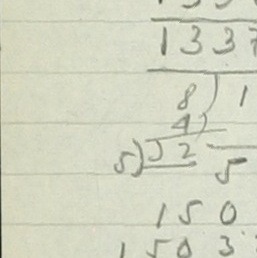 1337
8) 1
4)
5) 52 5
150
1503